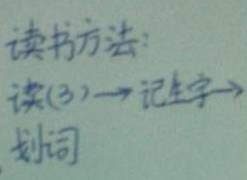 读书方法:
读(3)→记生字→
划词